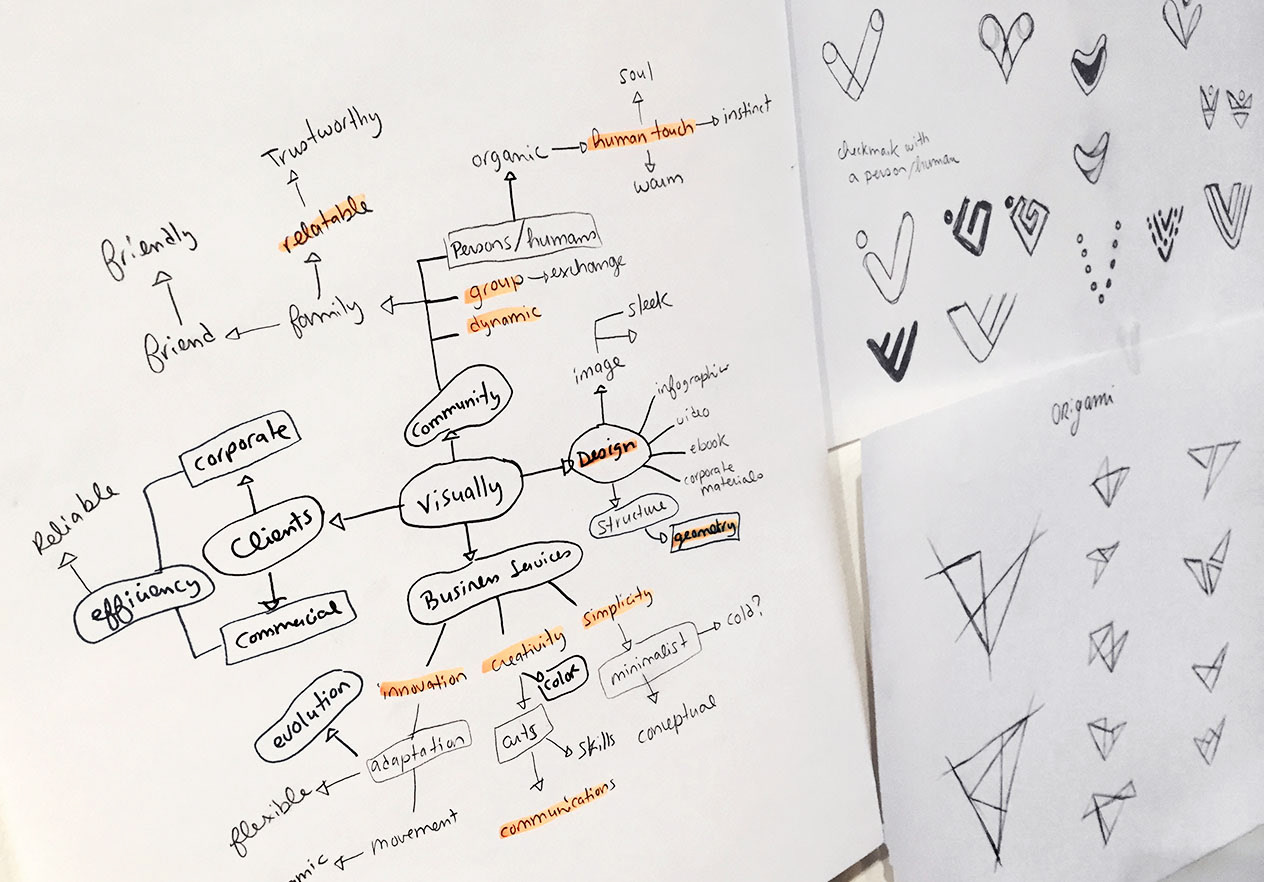 soul
human touch
instinct
organic
warm
Trustworthy
relatable
friendly
Persons/humans
group
exchange
dynamic
family
friend
sleek
image
infographic
video
ebook
corporate
materials
Design
Community
corporate
Visually
structure
geometry
Reliable
Clients
efficiency
Commercial
Business Services
simplicity
creativity
innovation
cold?
minimalist
color
evolution
conceptual
arts
skills
adaptation
flexible
communications
movement
checkmark with
a person/human
origami